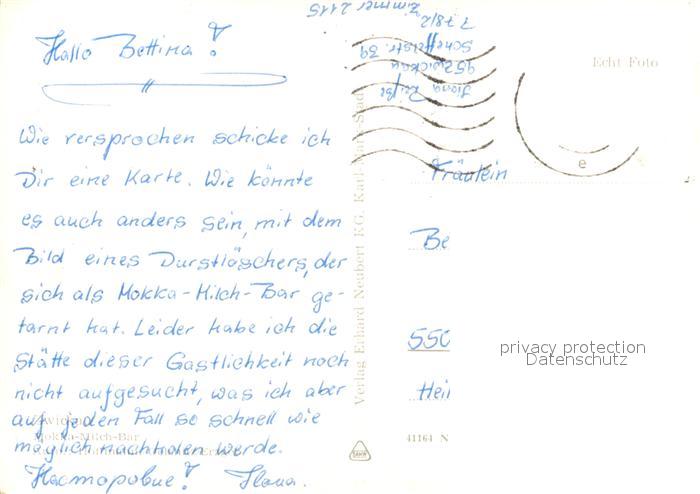 Hallo Bettina!
Wie versprochen schicke ich
Dir eine Karte. Wie könnte
es auch anders sein, mit dem
Bild eines Durstlöschers, der
sich als Mokka-Milch-Bar ge-
tarnt hat. Leider habe ich die
Stätte dieser Gastlichkeit noch
nicht aufgesucht, was ich aber
auf jeden Fall so schnell wie
möglich nachholen werde.
Ilona.
Mokka-Milch-Bar
Verlag Erhard Neubert KG, Karl-Marx-Stadt
Ilona
95 Zwickau
Scheffelstr. 39
778/2
Zimmer 2115
Echt Foto
e
Fräulein
Be
550
Hei
41164 N
privacy protection
Datenschutz